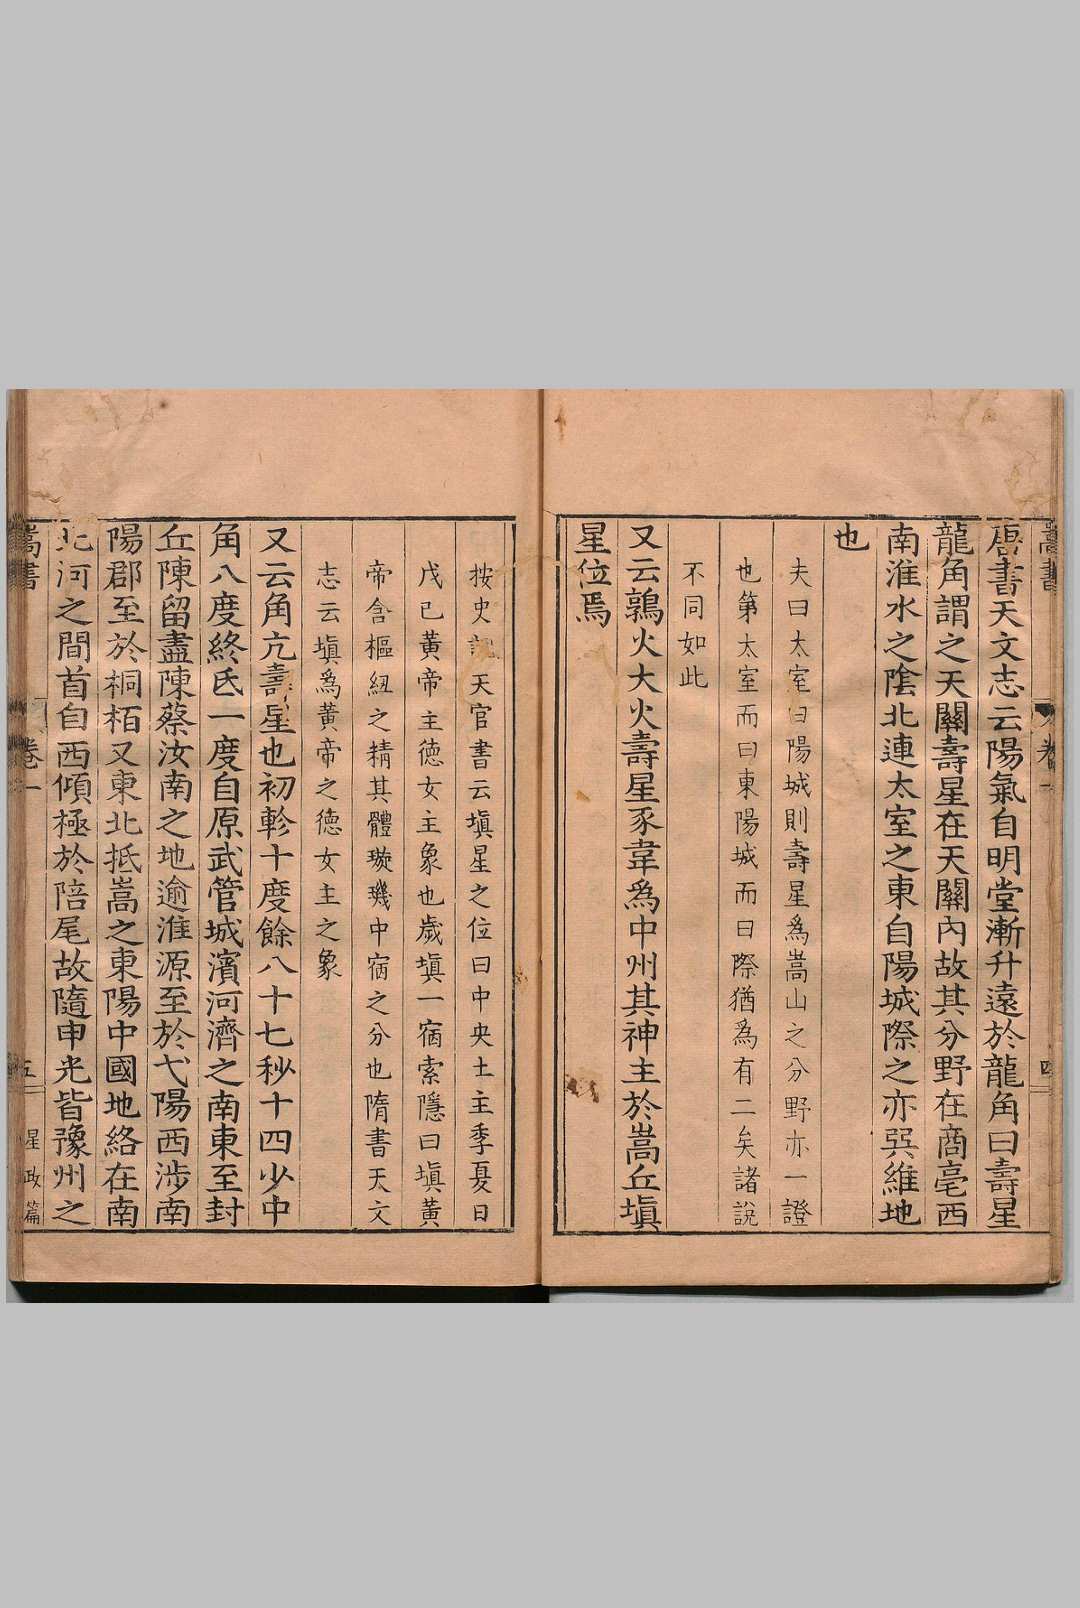 嵩書
卷一
四
唐書天文志云陽氣自明堂漸升遠於龍角曰壽星
龍角謂之天關壽星在天關內故其分野在商亳西
南淮水之陰北連太室之東自陽城際之亦巽維地
也
夫曰太室曰陽城則壽星為嵩山之分野亦一證
也第太室而曰東陽城而曰際猶為有二矣諸說
不同如此
又云鶉火大火壽星豕韋為中州其神主於嵩丘塡
星位焉
按史記天官書云塡星之位曰中央土主季夏日
戊己黃帝主德女主象也歲塡一宿索隱曰塡黃
帝含樞紐之精其體璇璣中宿之分也隋書天文
志云塡為黃帝之德女主之象
又云角亢壽星也初軫十度餘八十七秒十四少中
角八度終氐一度自原武管城濱河濟之南東至封
丘陳留盡陳蔡汝南之地逾淮源至於弋陽西涉南
陽郡至於桐栢又東北抵嵩之東陽中國地絡在南
北河之間首自西傾極於陪尾故隨申光皆豫州之
嵩書
卷一
五
星政篇